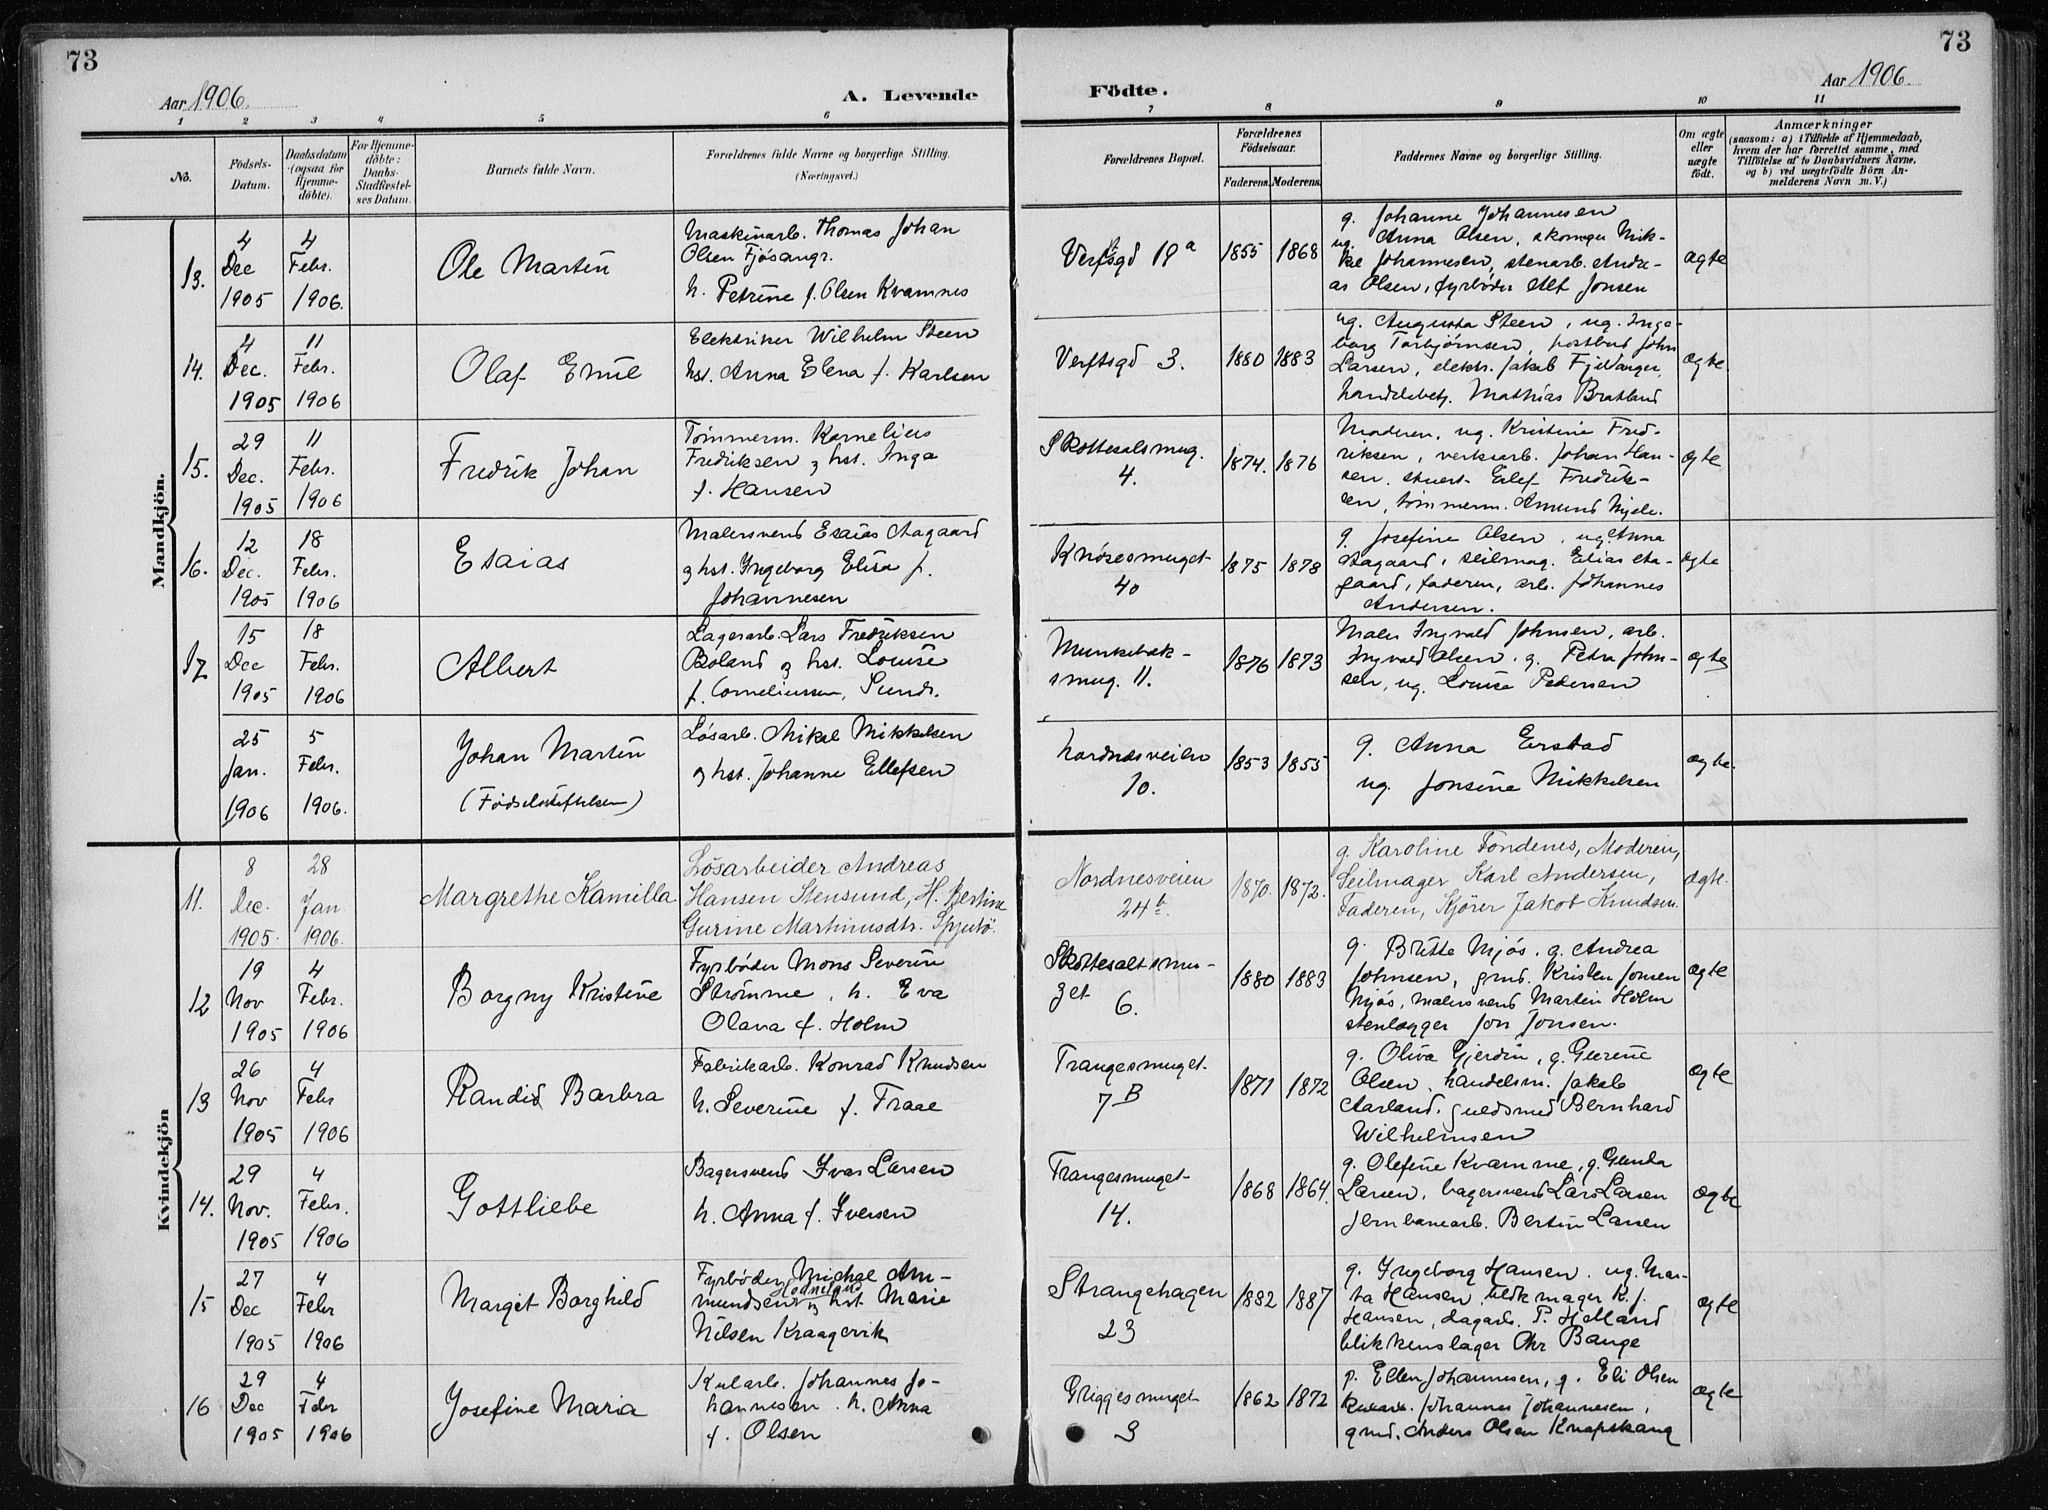 73
73
Aar 1906.
A. Levende
Födte.
Aar 1906.
1 2 3 4 5 6 7 8 9 10 11
No.
Födsels-Datum.
Daabsdatum (ogsaa for Hjemme-döbte).
For Hjemme-döbte: Daabs-Stadfæstel-ses Datum.
Barnets fulde Navn.
Forældrenes fulde Navne og borgerlige Stilling.
(Næringsvei.)
Forældrenes Bopæl.
Forældrenes Födselsaar.
Faderens. Moderens.
Faddernes Navne og borgerlige Stilling.
Om ægte eller uægte födt.
Anmærkninger
(saasom: a) i Tilfælde af Hjemmedaab, hvem der har forrettet samme, med Tilföielse af to Daabsvidners Navne, og b) ved uægtefödte Börn An-melderens Navn m. V.)
Mandkjön.
13.
4 Dec 1905
4 Febr. 1906.
Ole Martin
Maskinarb. Thomas Johan
Olsen Fjösangr.
h. Petrine f. Olsen Kvamnes
Verftsgd 19 a
1855 1868
g. Johanne Johannesen
ug. Anna Olsen, skomager Mik-
kel Johannesen, stenarb. Andre-
as Olsen, fyrbøder Alf Jonsen
ægte
14.
4 Dec. 1905
11 Febr. 1906
Olaf Emil
Elektriker Wilhelm Steen
hst. Anna Elena f. Karlsen
Verftsgd 3.
1880 1883
ug. Augusta Steen, ug. Inge-
borg Torbjörnsen, postbud John
Larsen, elektr. Jakob Fjeldanger,
handelsbetj. Mathias Bratland
ægte.
15.
29 Dec. 1905
11 Febr. 1906
Fredrik Johan
Tömmerm. Kornelius
Fredriksen og hst. Inga
f. Hansen
Skottesalsmug.
4.
1874. 1876
Moderen, ug. Kristine Fred-
riksen, verksarb. Johan Han-
sen. stuert Eilef Fredrik-
sen, tømmerm. Amund
ægte
16.
12 Dec. 1905
18 Febr. 1906
Esaias
Malersvend Esaias Aagaard
og hst. Ingeborg Elisa f.
Johannesen
Knøsesmuget
40
1875 1878
g. Josefine Olsen, ug Anna
Aagaard, seilmag. Elias Aa-
gaard, faderen, arb. Johannes
Andersen.
ægte
17
15 Dec 1905
18 Febr. 1906
Albert
Lagerarb. Lars Fredriksen
Boland og hst. Louise
f. Corneliussen, Sunds.
Munkebæk-
smug. 11.
1876 1873
Maler Ingvald Johnsen, arb.
Ingvald Olsen. g. Petra John-
sen, ug. Louise Pedersen
ægte
25 Jan. 1906
5 Febr. 1906.
Johan Martin
(Fødselsstiftelsen)
Løsarb. Mikal Mikkelsen
og hst. Johanne Ellefsen
Nordnesveien
70.
1853 1855
g. Anna Erstad
ug. Jonsine Mikkelsen
ægte.
Kvindekjön
11.
8 Dec. 1905.
28 Jan 1906.
Margrethe Kamilla
Lösarbeider Andreas
Hansen Stensund, H. Bertine
Gurine Martinusdtr. Spjutö.
Nordnesveien
24 b.
1870. 1872.
g. Karoline Tondenes, Moderen,
Seilmager Karl Andersen,
Faderen, Kjører Jakob Knudsen.
ægte.
12
19 Nov 1905
4 Febr. 1906
Borgny Kristine
Fyrbøder Mons Severin
Strømme, h. Eva
Olava f. Holm
Skottesaltsmu-
get
6.
1880 1883
g. Britte Mjøs, g. Andrea
Johnsen, grmd. Kristen Jonsen
Mjøs, malersvend Martin Holm
stenlægger Jon Jonsen.
ægte
13
26 Nov 1905
4 Febr 1906
Randid Barbra
Fabrikarb. Konrad Knudsen
h. Severine f. Traae
Trangesmuget
7 B
1871 1872
g. Oliva Gjerdin, g. Gurine
Olsen, handelsm. Jakob
Aarland. guldsmed Bernhard
Wilhelmsen
ægte
14.
29 Nov. 1905
4 Febr. 1906
Gottliebe
Bagersvend Ivar Larsen
h. Anna f. Iversen
Trangesmuget
14.
1868 1864.
g. Olefine Kvamme, g. Gunda
Larsen, bagersvend Lars Larsen
jernbanearb. Bertin Larsen
ægte
15
27 Dec 1905
4 Febr 1906
Margit Borghild
Fyrbøder Michal Am-
mundsen og hst Marie
Nilsen Kraagevik
Strangehagen
23
1882 1887
g. Ingeborg Hansen. ug. Mar-
ta Hansen, blikmager K. J.
Hansen, dagarb. P. Helland
blikkenslager Chr Bauge
ægte
16
29 Dec 1905
4 Febr 1906
Josefine Maria
Kularb. Johannes Jo-
hannesen. h. Anna
f. Olsen
Griggesmuget
9
1862 1872
g. Ellen Johannesen, g. Eli Olsen
kularb. Johannes Johannesen,
grmd. Anders Olsen Knapskaug
ægte